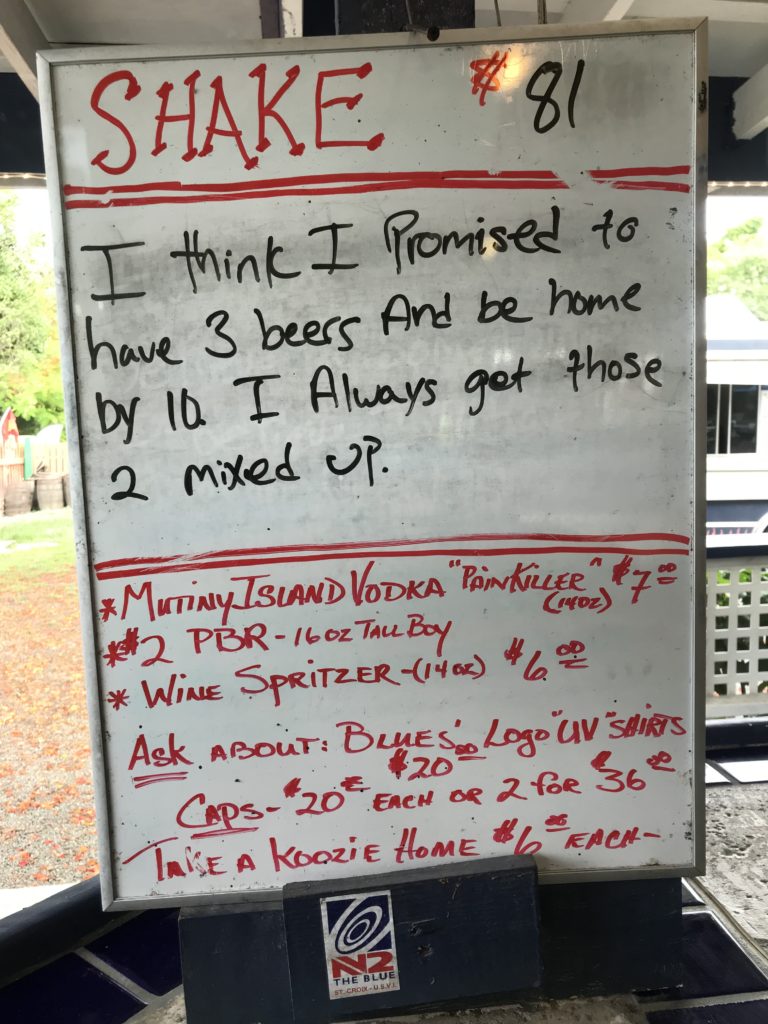 SHAKE $ 81
I think I Promised to
have 3 beers And be home
by 10. I Always get those
2 mixed UP.
* MUTINY ISLAND VODKA "PAINKILLER" $7.00
(14OZ)
* $2 PBR - 16 OZ TALL BOY
* WINE SPRITZER - (14 OZ) $6.00
ASK ABOUT: BLUES' LOGO "UV" SHIRTS
$20.00
CAPS - $20 EACH OR 2 FOR $36.00
TAKE A KOOZIE HOME $6.00 EACH -
N2
THE BLUE
ST. CROIX - U.S.V.I.